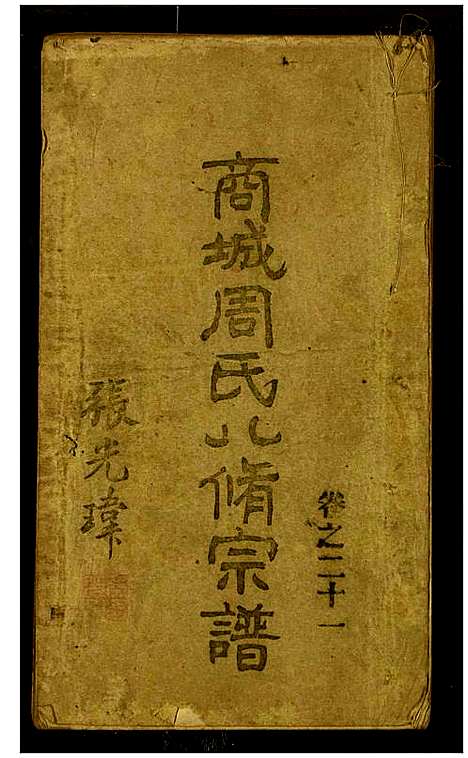 卷之二十一
商城周氏八脩宗譜
張先瑋